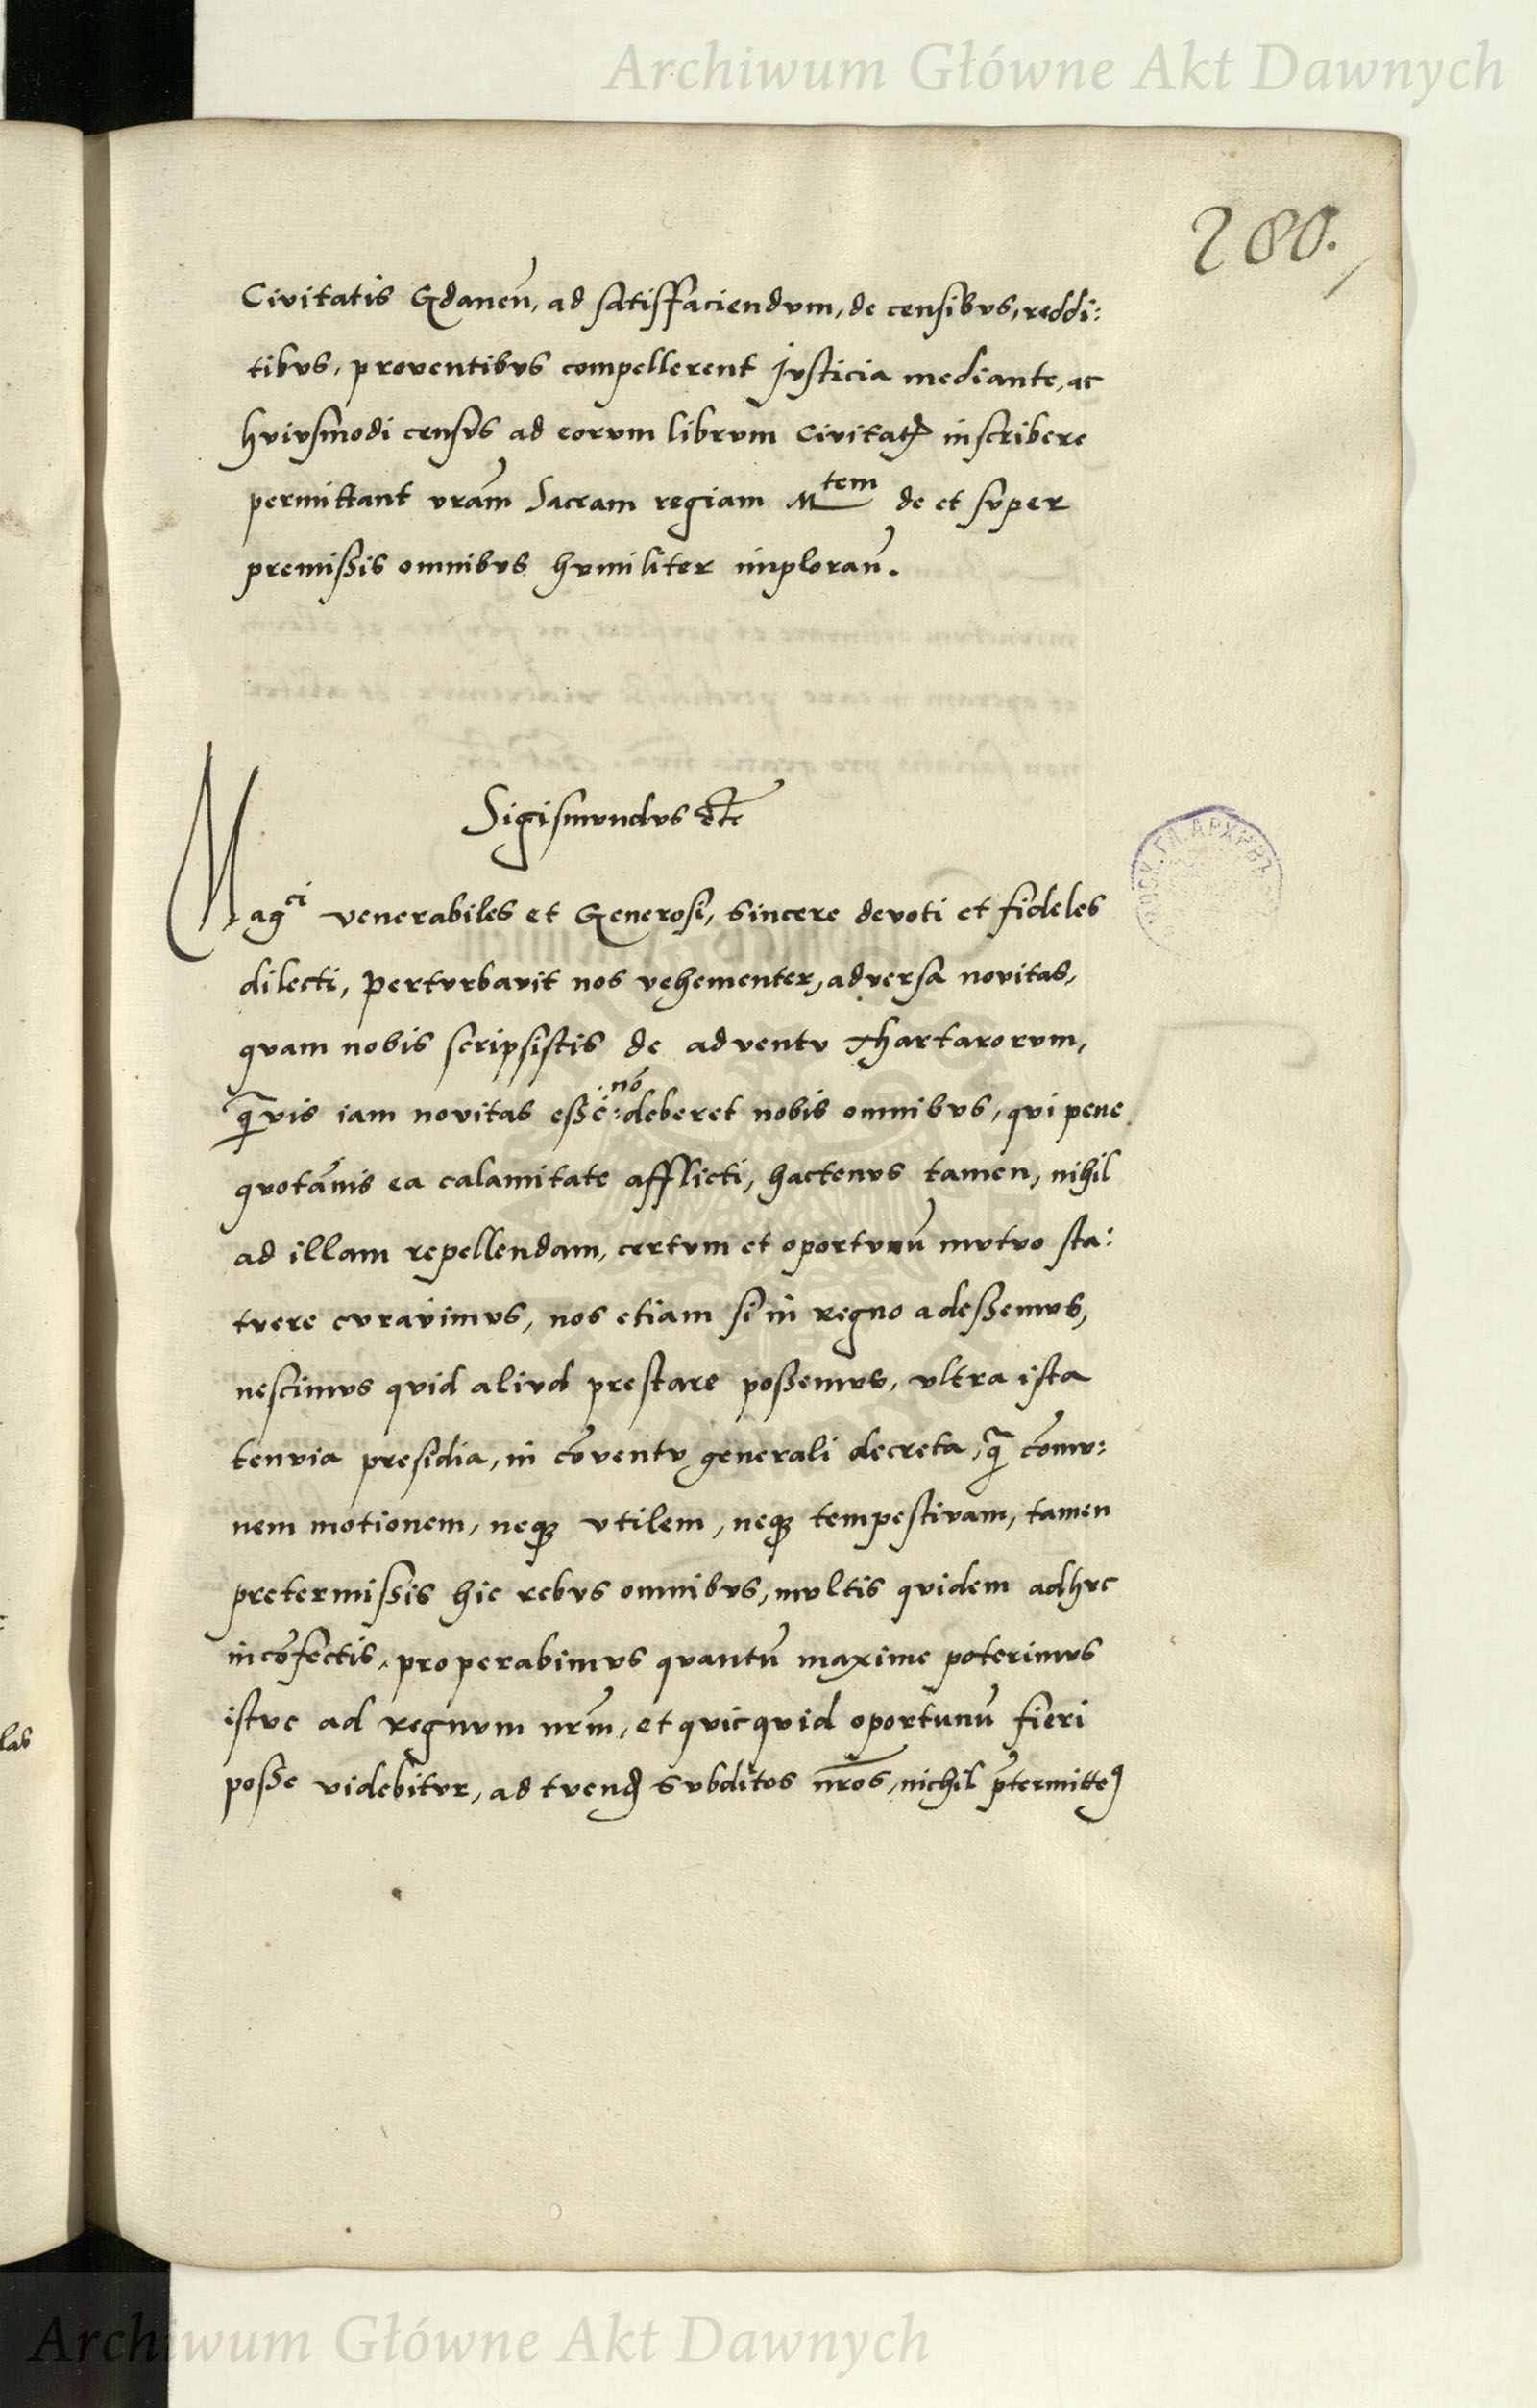 Archiwum Główne Akt Dawnych
280.
Civitatis Gdaneñ, ad satisffaciendvm, de censibvs, reddi:
tibvs, proventibvs compellerent Jvsticia mediante, ac
hvivsmodi censvs ad eorvm librvm Civitatꝭ inscribere
permittant vrãm Sacram regiam Mtem de et svper
premißis omnibvs hvmiliter implorañ.
Sigismvndvs etc̃
Magci venerabiles et Generosi, sincere devoti et fideles
dilecti, pertvrbavit nos vehementer, adversa novitas,
qvam nobis scripsistis de adventv Thartarorvm,
q̃vis iam novitas eße: nõ deberet nobis omnibvs, qvi pene
qvotãnis ea calamitate afflicti, hactenvs tamen, nihil
ad illam repellendam, certvm et oportvnũ mvtvo sta:
tvere cvravimvs, nos etiam si in regno adeßemvs,
nescimvs qvid alivd prestare poßemvs, vltra ista
tenvia presidia, in cõventv generali decreta, q̃ cõmv:
nem motionem, neqꝫ vtilem, neqꝫ tempestivam, tamen
pretermißis hic rebvs omnibvs, mvltis qvidem adhvc
incõfectis, properabimvs qvantũ maxime poterimvs
istvc ad regnvm nrm̃, et qvicqvid oportunũ fieri
poße videbitvr, ad tvenđ svbditos nr̃os, nichil p̃termitteꝫ
Archiwum Główne Akt Dawnych